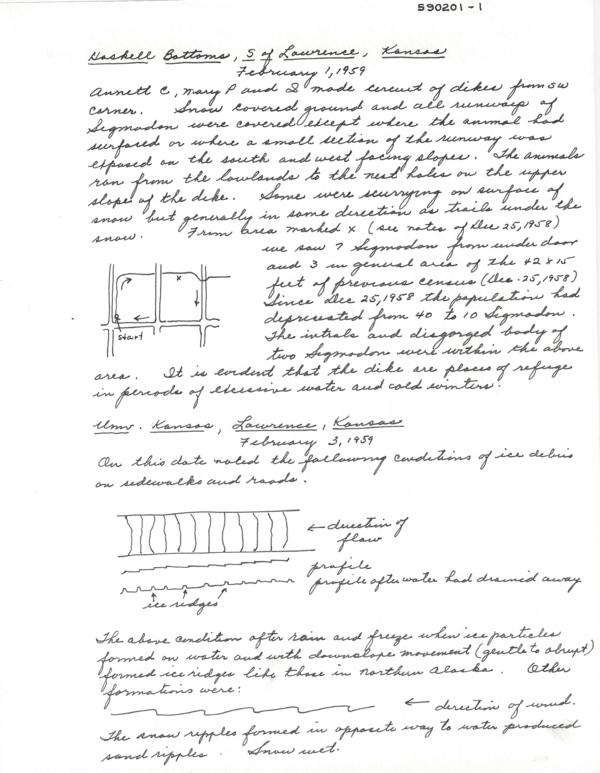 590201-1
Haskell Bottoms, S of Lawrence, Kansas
February 1, 1959
Annett C, Mary P and I made circuit of dikes from SW
corner. Snow covered ground and all runways of
Sigmodon were covered except where the animal had
surfaced or where a small section of the runway was
exposed on the south and west facing slopes. The animals
ran from the lowlands to the nest holes on the upper
slope of the dike. Some were scurrying on surface of
snow but generally in same direction as trails under the
snow. From area marked x (see notes of Dec 25, 1958)
we saw 7 Sigmodon from under door
and 3 in general area of the 42 x 15
feet of previous census (Dec. 25, 1958)
Since Dec 25, 1958 the population had
depreciated from 40 to 10 Sigmodon.
The intrals and disgorged body of
two Sigmodon were within the above
area. It is evident that the dike are places of refuge
in periods of excessive water and cold winters.
x
start
Univ. Kansas, Lawrence, Kansas
February 3, 1959
On this date noted the following conditions of ice debris
on sidewalks and roads.
← direction of
flow
profile
profile after water had drained away
ice ridges
The above condition after rain and freeze when ice particles
formed on water and with downslope movement (gentle to abrupt)
formed ice ridges like those in northern Alaska. Other
formations were:
← direction of wind.
The snow ripples formed in opposite way to water produced
sand ripples. Snow wet.